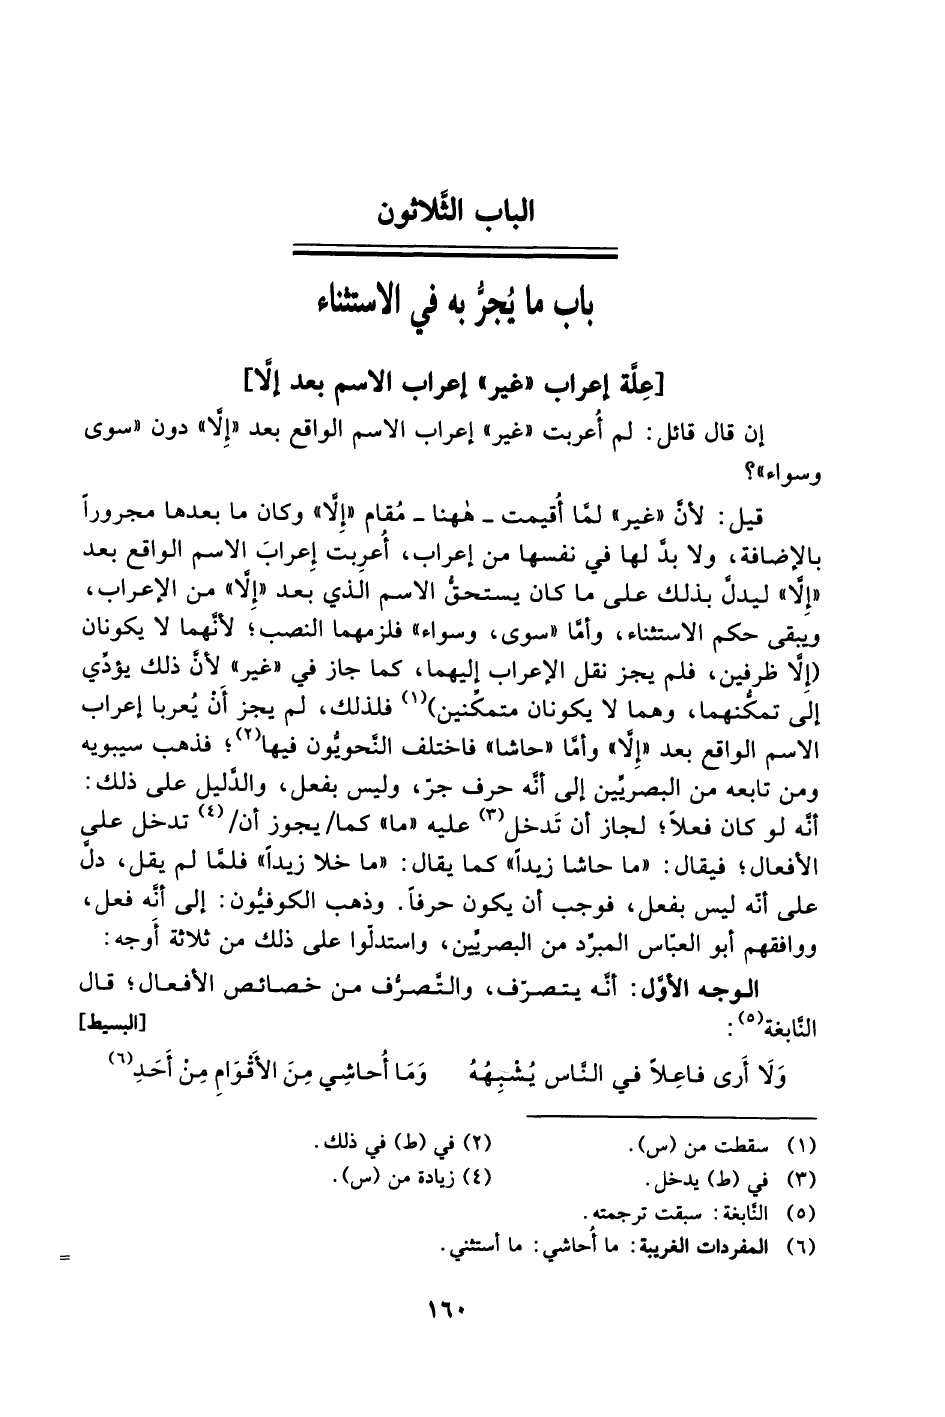 الباب الثَّلاثون
باب ما يُجرُّ به في الاستثناء
[عِلَّة إعراب «غير» إعراب الاسم بعد إلَّا]
إن قال قائل: لم أُعربت «غير» إعراب الاسم الواقع بعد «إلَّا» دون «سوى
وسواء»؟
قيل: لأنَّ «غير» لمَّا أُقيمت ـ هٰهنا ـ مُقام «إلَّا» وكان ما بعدها مجروراً
بالإضافة، ولا بدَّ لها في نفسها من إعراب، أُعرِبت إعرابَ الاسم الواقع بعد
«إلَّا» ليدلَّ بذلك على ما كان يستحقُّ الاسم الذي بعد «إلَّا» من الإعراب،
ويبقى حكم الاستثناء، وأمَّا «سوى، وسواء» فلزمهما النصب؛ لأنَّهما لا يكونان
(إلَّا ظرفين، فلم يجز نقل الإعراب إليهما، كما جاز في «غير» لأنَّ ذلك يؤدِّي
إلى تمكُّنهما، وهما لا يكونان متمكِّنين)(١) فلذلك، لم يجز أنْ يُعربا إعراب
الاسم الواقع بعد «إلَّا» وأمَّا «حاشا» فاختلف النَّحويُّون فيها(٢)؛ فذهب سيبويه
ومن تابعه من البصريِّين إلى أنَّه حرف جرّ، وليس بفعل، والدَّليل على ذلك:
أنَّه لو كان فعلاً؛ لجاز أن تَدخل(٣) عليه «ما» كما/ يجوز أن/(٤) تدخل على
الأفعال؛ فيقال: «ما حاشا زيداً» كما يقال: «ما خلا زيداً» فلمَّا لم يقل، دلَّ
على أنّه ليس بفعل، فوجب أن يكون حرفاً. وذهب الكوفيُّون: إلى أنَّه فعل،
ووافقهم أبو العبّاس المبرِّد من البصريِّين، واستدلّوا على ذلك من ثلاثة أَوجه:
الوجه الأوَّل: أنَّه يتصرّف، والتَّصرُّف من خصائص الأفعال؛ قال
النَّابغة(٥): [البسيط]
وَلَا أَرى فَاعِلاً في النَّاس يُشْبِهُهُ وَمَا أُحاشِي مِنَ الأَقْوَامِ مِنْ أَحَدِ(٦)
(١) سقطت من (س). (٢) في (ط) في ذلك.
(٣) في (ط) يدخل. (٤) زيادة من (س).
(٥) النَّابغة: سبقت ترجمته.
(٦) المفردات الغريبة: ما أُحاشي: ما أستثني. =
١٦٠